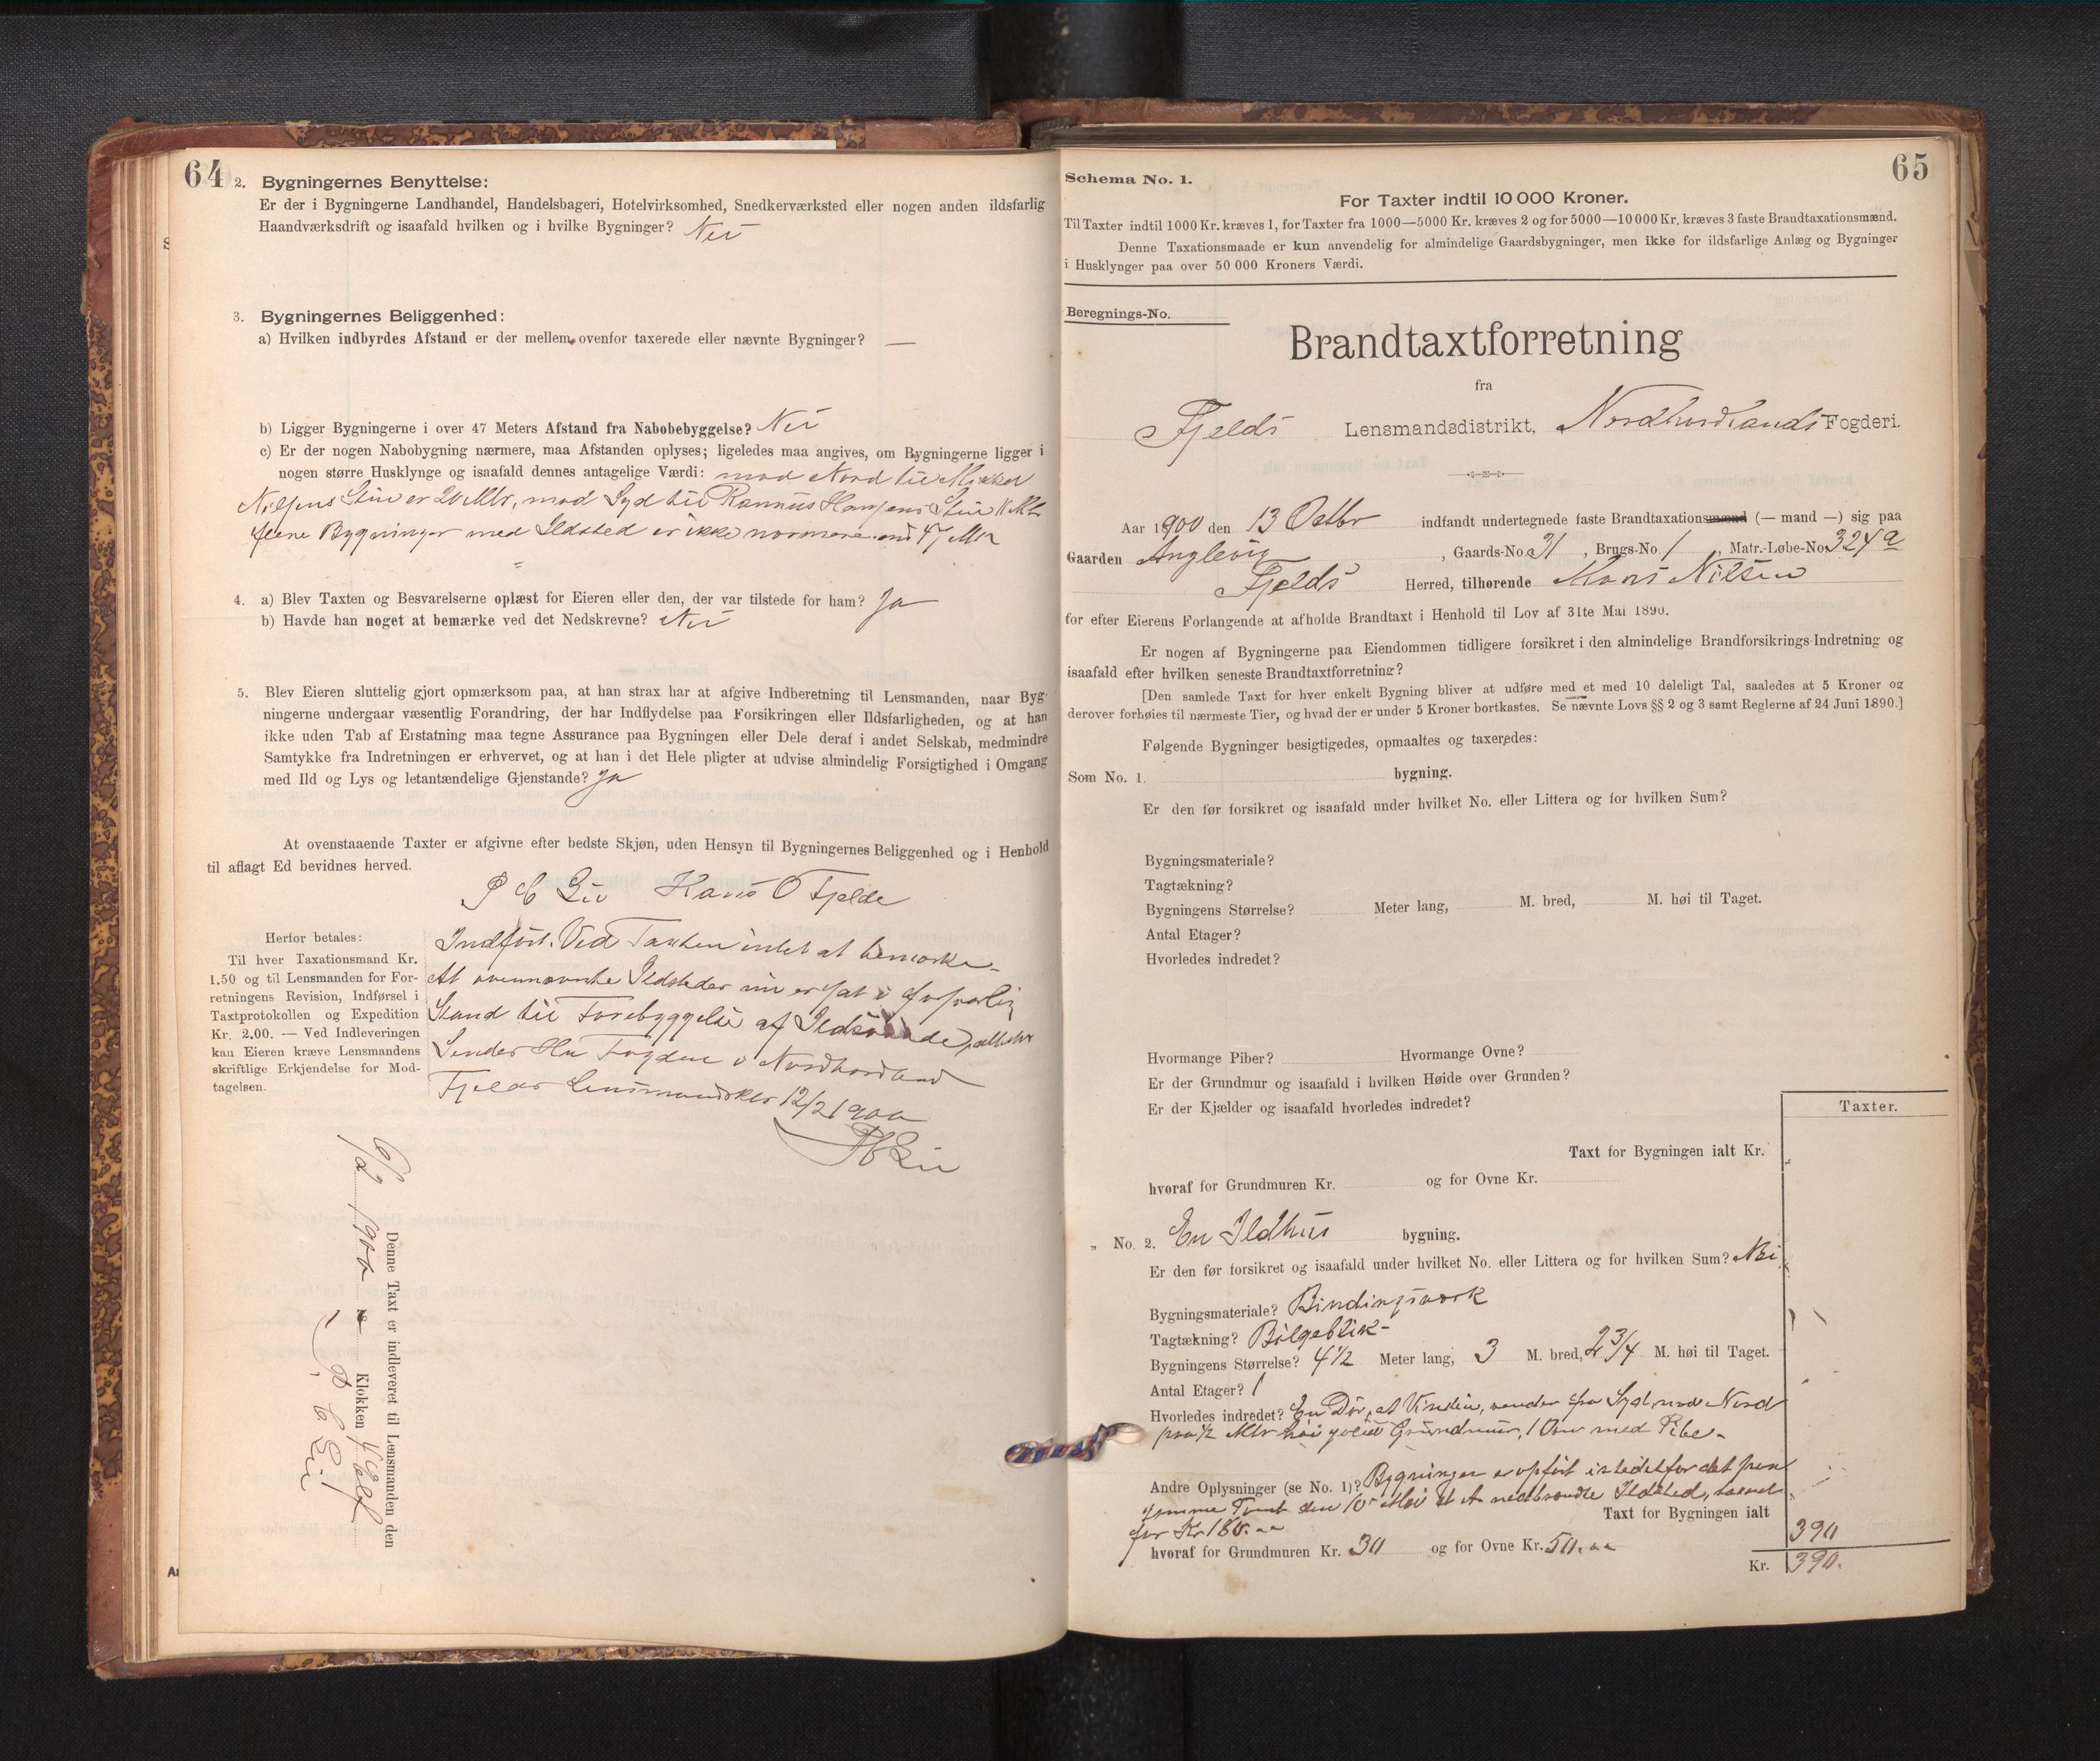 64
2. Bygningernes Benyttelse:
Er der i Bygningerne Landhandel, Handelsbageri, Hotelvirksomhed, Snedkerværksted eller nogen anden ildsfarlig
Haandværksdrift og isaafald hvilken og i hvilke Bygninger? Nei
3. Bygningernes Beliggenhed:
a) Hvilken indbyrdes Afstand er der mellem ovenfor taxerede eller nævnte Bygninger? —
b) Ligger Bygningerne i over 47 Meters Afstand fra Nabobebyggelse? Nei
c) Er der nogen Nabobygning nærmere, maa Afstanden oplyses; ligeledes maa angives, om Bygningerne ligger i
nogen større Husklynge og isaafald dennes antagelige Værdi: mod Nord til Mikkel
Nilsens Stue er 20 Mtr, mod Syd til Rasmus Hansens Stue 11 Mtr
flere Bygninger med Ildsted er ikke nærmere end 47 Mtr
4. a) Blev Taxten og Besvarelserne oplæst for Eieren eller den, der var tilstede for ham? Ja
b) Havde han noget at bemærke ved det Nedskrevne? Nei
5. Blev Eieren sluttelig gjort opmærksom paa, at han strax har at afgive Indberetning til Lensmanden, naar Byg-
ningerne undergaar væsentlig Forandring, der har Indflydelse paa Forsikringen eller Ildsfarligheden, og at han
ikke uden Tab af Erstatning maa tegne Assurance paa Bygningen eller Dele deraf i andet Selskab, medmindre
Samtykke fra Indretningen er erhvervet, og at han i det Hele pligter at udvise almindelig Forsigtighed i Omgang
med Ild og Lys og letantændelige Gjenstande? Ja
At ovenstaaende Taxter er afgivne efter bedste Skjøn, uden Hensyn til Bygningernes Beliggenhed og i Henhold
til aflagt Ed bevidnes herved.
P C Lie Hans O Fjelde
Herfor betales:
Til hver Taxationsmand Kr.
1.50 og til Lensmanden for For-
retningens Revision, Indførsel i
Taxtprotokollen og Expedition
Kr. 2.00. — Ved Indleveringen
kan Eieren kræve Lensmandens
skriftlige Erkjendelse for Mod-
tagelsen.
Indført. Ved Taxten intet at bemærke.
At ovennævnte Ildsteder nu er sat i forsvarlig
Stand til Forebyggelse af Ildsvaade,
Sendes Hr Fogden i Nordhordland
Fjelds Lensmandsktr 12/2 1900
PCLie
Denne Taxt er indleveret til Lensmanden den
6/2 1900 Klokken 11 Elef
P C Lie
65
Schema No. 1.
For Taxter indtil 10 000 Kroner.
Til Taxter indtil 1000 Kr. kræves 1, for Taxter fra 1000—5000 Kr. kræves 2 og for 5000—10 000 Kr. kræves 3 faste Brandtaxationsmænd.
Denne Taxationsmaade er kun anvendelig for almindelige Gaardsbygninger, men ikke for ildsfarlige Anlæg og Bygninger
i Husklynger paa over 50 000 Kroners Værdi.
Beregnings-No.
Brandtaxtforretning
fra
Fjelds Lensmandsdistrikt, Nordhordlands Fogderi.
Aar 1900 den 13 Octbr indfandt undertegnede faste Brandtaxationsmænd (— mand —) sig paa
Gaarden Anglevig, Gaards-No. 31, Brugs-No 1, Matr.-Løbe-No. 324a
Fjelds Herred, tilhørende Mons Nilsen
for efter Eierens Forlangende at afholde Brandtaxt i Henhold til Lov af 31te Mai 1890.
Er nogen af Bygningerne paa Eiendommen tidligere forsikret i den almindelige Brandforsikrings-Indretning og
isaafald efter hvilken seneste Brandtaxtforretning?
[Den samlede Taxt for hver enkelt Bygning bliver at udføre med et med 10 deleligt Tal, saaledes at 5 Kroner og
derover forhøies til nærmeste Tier, og hvad der er under 5 Kroner bortkastes. Se nævnte Lovs §§ 2 og 3 samt Reglerne af 24 Juni 1890.]
Følgende Bygninger besigtigedes, opmaaltes og taxeredes:
Som No. 1. bygning.
Er den før forsikret og isaafald under hvilket No. eller Littera og for hvilken Sum?
Bygningsmateriale?
Tagtækning?
Bygningens Størrelse? Meter lang, M. bred, M. høi til Taget.
Antal Etager?
Hvorledes indredet?
Hvormange Piber? Hvormange Ovne?
Er der Grundmur og isaafald i hvilken Høide over Grunden?
Er der Kjælder og isaafald hvorledes indredet?
Taxter.
Taxt for Bygningen ialt Kr.
hvoraf for Grundmuren Kr. og for Ovne Kr.
„ No. 2. En Ildhus bygning.
Er den før forsikret og isaafald under hvilket No. eller Littera og for hvilken Sum? Nei
Bygningsmateriale? Bindingsværk
Tagtækning? Bølgeblik
Bygningens Størrelse? 4½ Meter lang, 3 M. bred, 2 3/4 M. høi til Taget.
Antal Etager? 1
Hvorledes indredet? En Dør, et Vindu, vender fra Syd mod Nord
paa ½ Mtr høi Grundmur, 1 Ovn med Pibe
Andre Oplysninger (se No. 1)? Bygningen er opført istedetfor det paa
samme Tomt den 10 Mai nedbrændte Ildsted, taxeret
for Kr 180.
Taxt for Bygningen ialt 390
hvoraf for Grundmuren Kr. 30 og for Ovne Kr. 50.
Kr. 390.